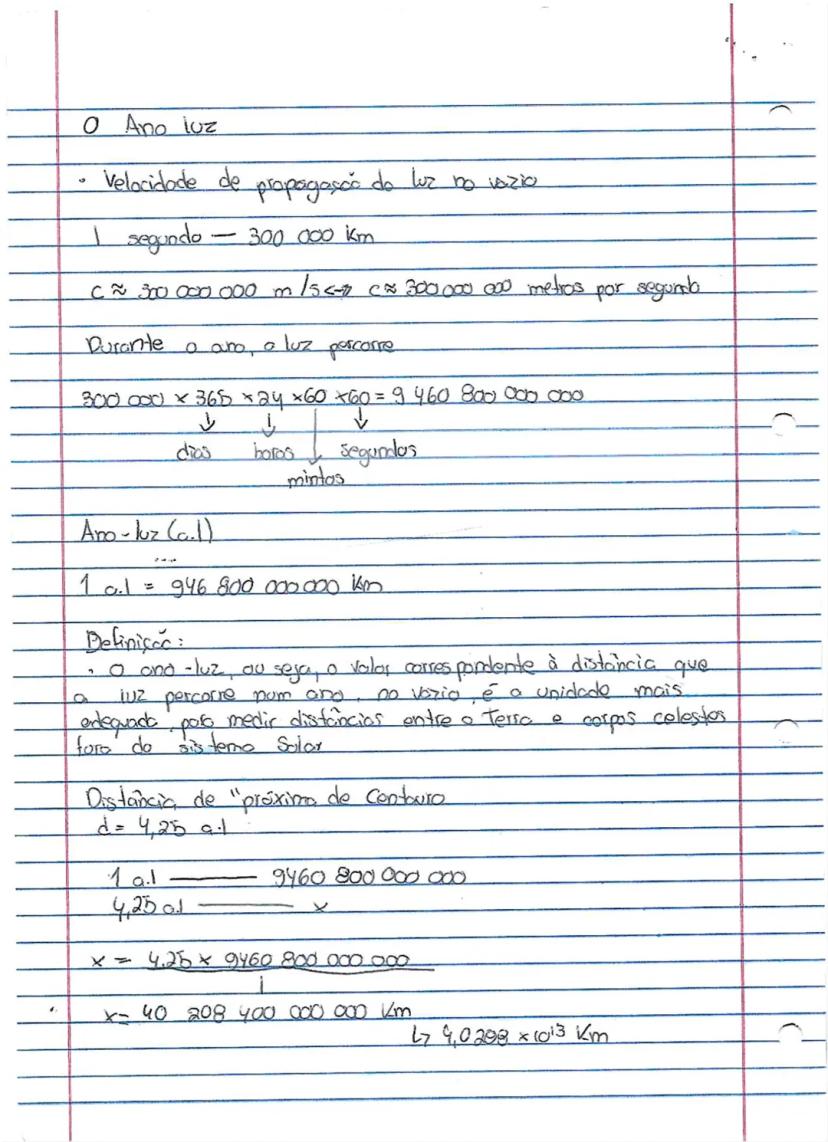 O Ano luz
• Velocidade de propagação da luz no vazio
1 segundo — 300 000 Km
c ≈ 300 000 000 m/s <=> c ≈ 300 000 000 metros por segundo
Durante o ano, a luz percorre
300 000 × 365 × 24 × 60 × 60 = 9 460 800 000 000
↓ ↓ ↓ ↓
dias horas segundos
mintos
Ano-luz (a.l)
....
1 a.l = 946 800 000 000 Km
Definição:
• O ano-luz, ou seja, o valor correspondente à distância que
a luz percorre num ano, no vazio, é a unidade mais
adequada para medir distâncias entre a Terra e corpos celestes
fora do sistema Solar
Distância de "próxima de Centauro
d = 4,25 a.l
1 a.l ——— 9460 800 000 000
4,25 a.l ——— x
x = 4.25 × 9460 800 000 000
1
x= 40 208 400 000 000 Km
↳ 4,0208 × 10¹³ Km